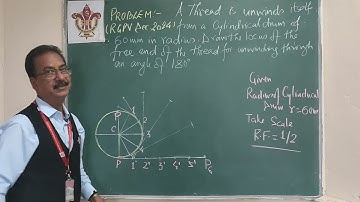 PROBLEM:- A Thread is unwinds itself
(RGPV Dec 2024) from a Cylindrical drum of
60mm in radius. Draw the locus of the
free end of the thread for unwinding through
an angle of 180°
Given
Radius of Cylindrical
Drum r=60mm
Take Scale
R.F = 1/2
P
C
2
3
P 1' 2' 3' 4' 5'